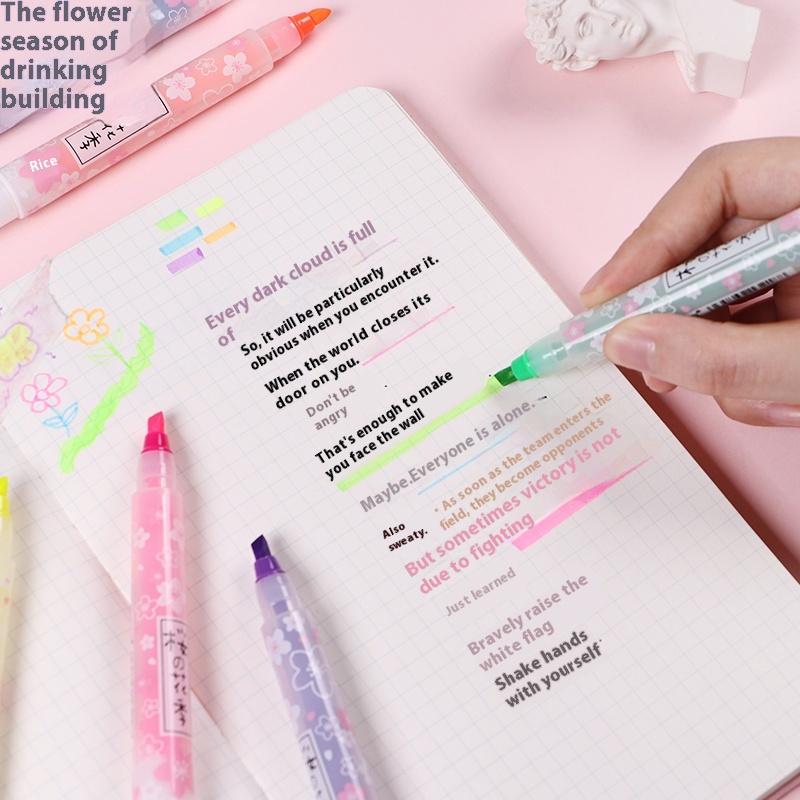 The flower
season of
drinking
building
Rice
花季
Every dark cloud is full
of
So, it will be particularly
obvious when you encounter it.
When the world closes its
door on you.
Don't be
angry
That's enough to make
you face the wall
Maybe.Everyone is alone.
· As soon as the team enters the
field, they become opponents
Also
sweaty.
But sometimes victory is not
due to fighting
Just learned
Bravely raise the
white flag
Shake hands
with yourself
の花季
桜の花季